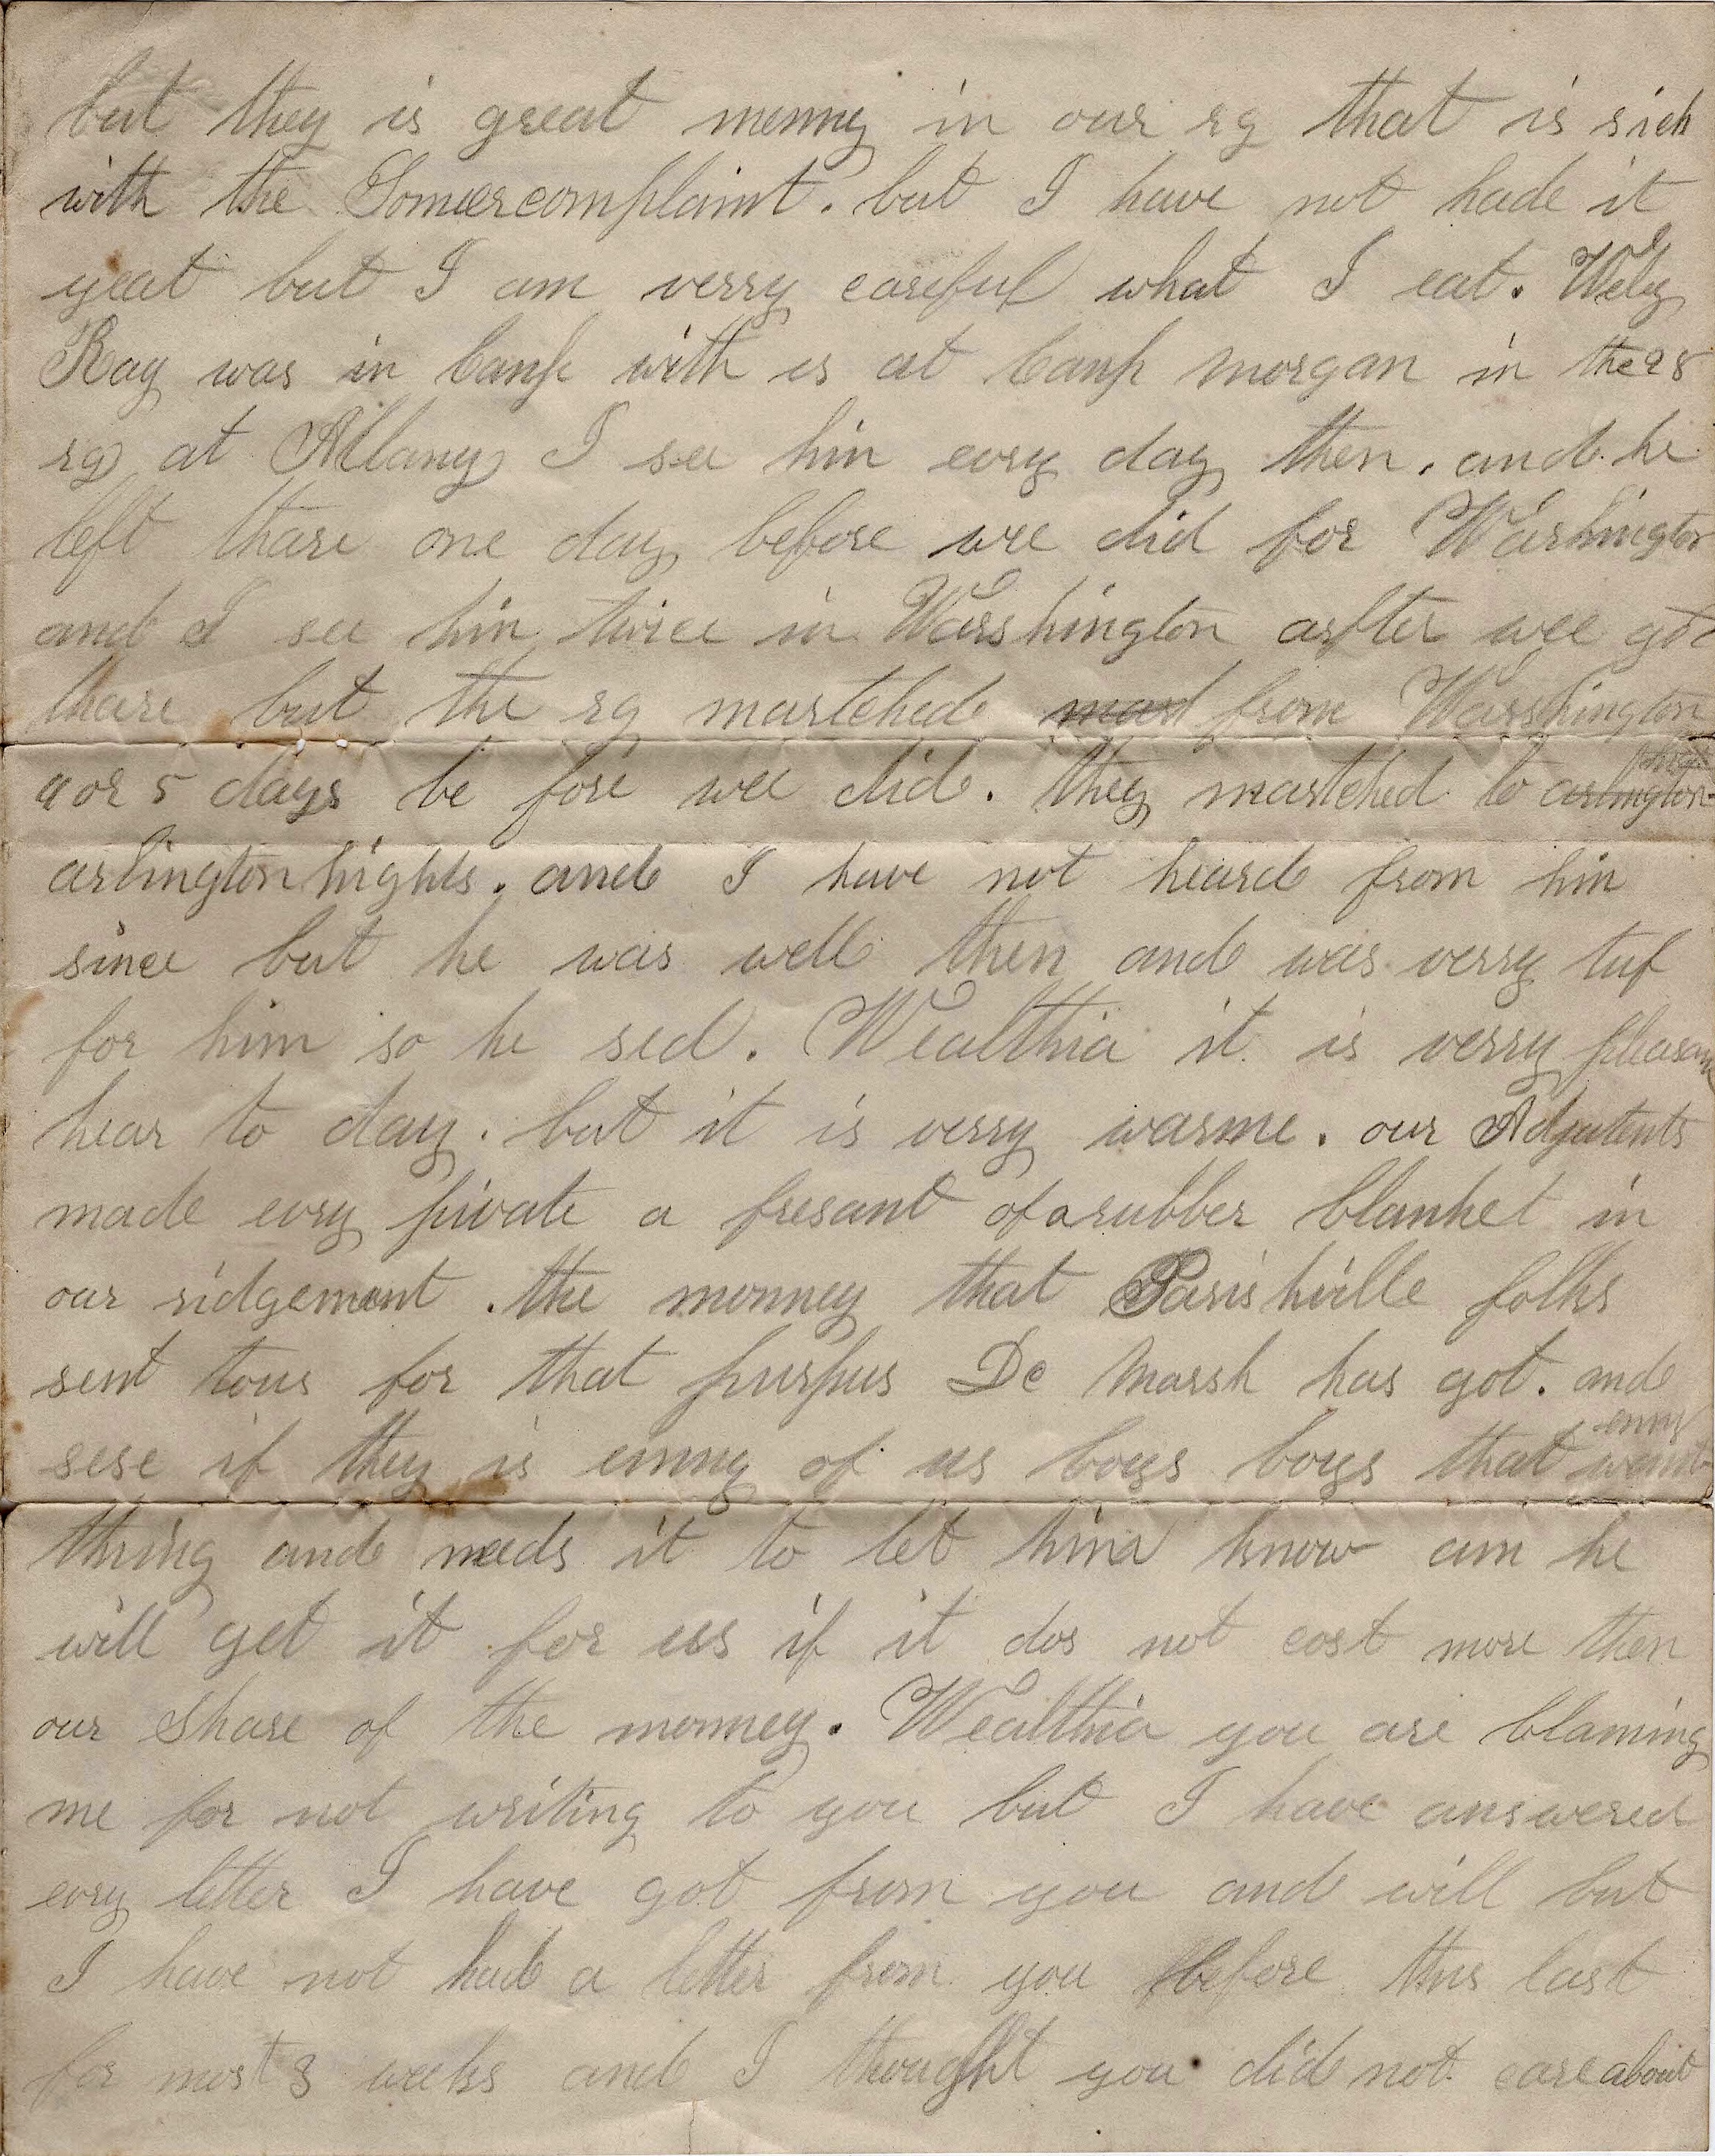 but they is great menny in our rg that is sick
with the Somercomplaint. but I have not hade it
yeat but I am verry careful what I eat. Wely
Ray was in Camp with us at Camp Morgan in the 98
rg at Albany I see him evry day then. and he
left thare one day before wee did for Washington
and I see him twice in Wasshington arfter wee got
thare but the rg martched from Wasshington
4 or 5 days be fore wee did. they martched to arlington
arlington hights. and I have not heard from him
since but he was well then and was verry tuf
for him so he sed. Wealthia it is verry pleasan
hear to day. but it is verry warme. our Adjutents
made evry pivate a presant of a rubber blanket in
our ridgement. the monney that Parishville folks
sent tous for that purpus De Marsh has got. and
sese if they is enny of us boys boys that want enny
thring and needs it to let him know an he
will get it for us if it dos not cost more then
our share of the monney. Wealthia you are blaming
me for not writing to you but I have answered
evry letter I have got from you and will but
I have not had a letter from you before this last
for most 3 weeks and I thought you did not care about